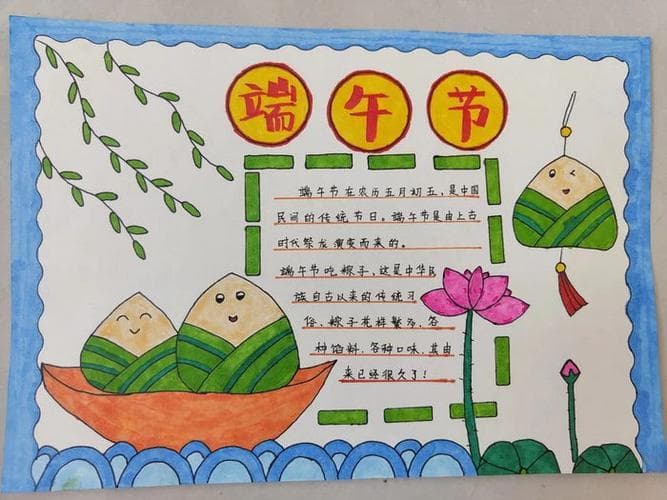 端午节
端午节在农历五月初五,是中国
民间的传统节日。端午节是由上古
时代祭龙演变而来的。
端午节吃粽子,这是中华民
族自古以来的传统习
俗,粽子花样繁多,各
种馅料,各种口味,其由
来已经很久了!